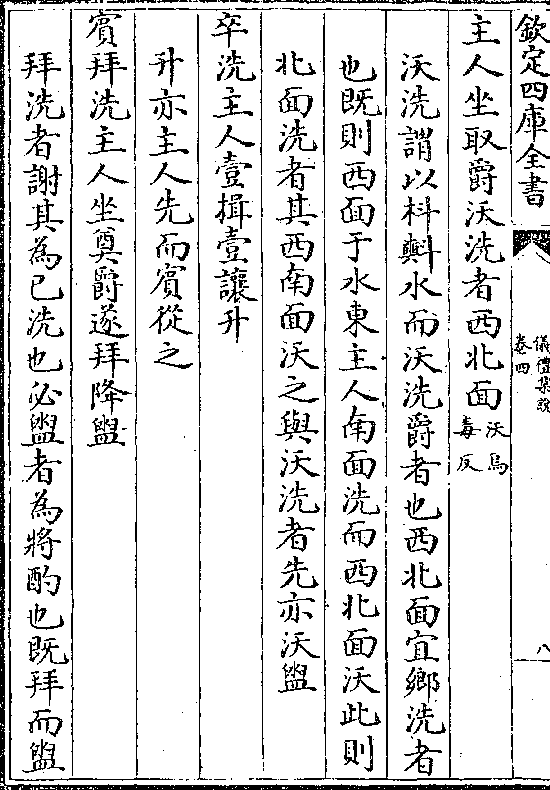 欽定四庫全書
儀禮集說
卷四
八
主人坐取爵沃洗者西北面沃烏毒反
沃洗謂以枓㪺水而沃洗爵者也西北面宜鄉洗者
也既則西面于水東主人南面洗而西北面沃此則
北面洗者其西南面沃之與沃洗者先亦沃盥
卒洗主人壹揖壹讓升
升亦主人先而賓從之
賓拜洗主人坐奠爵遂拜降盥
拜洗者謝其為已洗也必盥者為將酌也既拜而盥